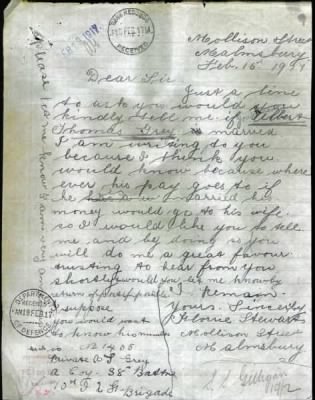 BASE RECORDS
19 FEB 1917
RECEIVED
Mollison Street
Malmsbury
Feb. 15 1917
Dear Sir
Just a line
to ask you would you
kindly tell me if Gilbert
Thomas Grey is married
I am writing to you
because I think you
would know because where
ever his pay goes to if
he married his
money would go to his wife.
so I would like you to tell
me and by doing so you
will do me a great favour
trusting to hear from you
shortly would you let me know by
return of post, please
I remain
Yours Sincerely
Florie Stewart
Mollison Street
Malmsbury
I suppose
you would want
to know his number
is No 1405
Private G T Grey
A Coy 38 Battn
10th Brigade
Please let me know
DEPARTMENT
RECEIVED
AM 19 FEB 17
OF DEFENCE